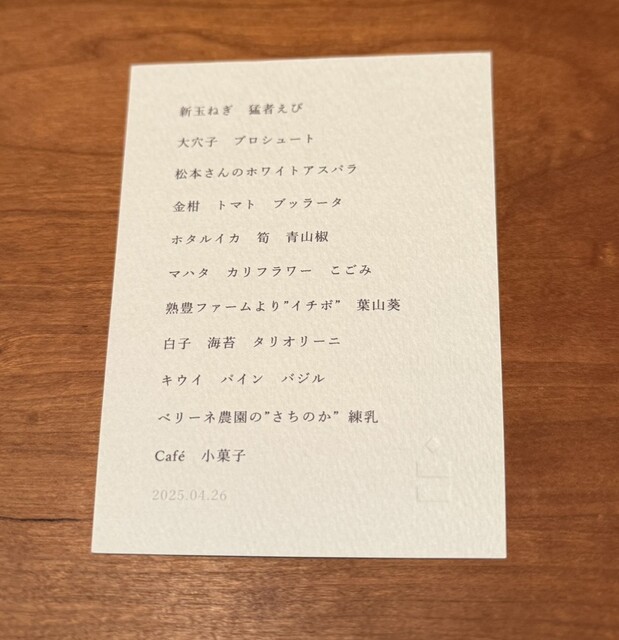 新玉ねぎ　猛者えび
大穴子　プロシュート
松本さんのホワイトアスパラ
金柑　トマト　ブッラータ
ホタルイカ　筍　青山椒
マハタ　カリフラワー　こごみ
熟豊ファームより"イチボ"　葉山葵
白子　海苔　タリオリーニ
キウイ　パイン　バジル
ベリーネ農園の"さちのか"　練乳
Café　小菓子
2025.04.26